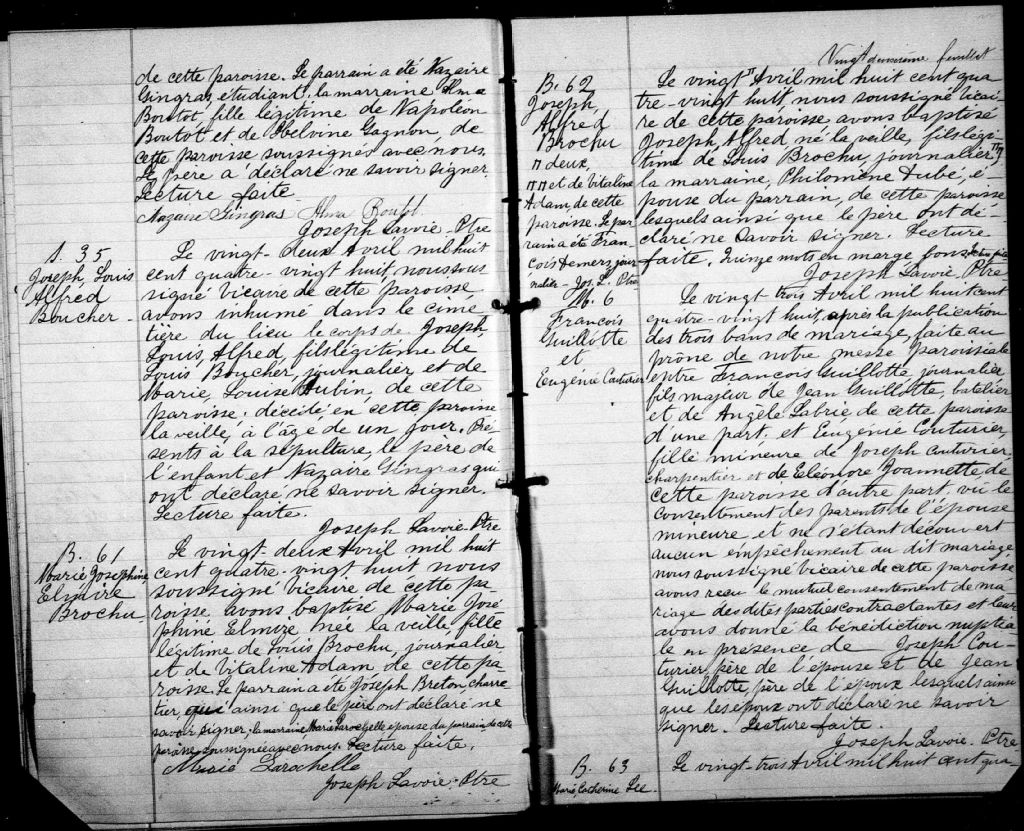 de cette paroisse. Le parrain a été Nazaire
Gingras, étudiant, la marraine Alma
Boutot, fille légitime de Napoléon
Boutot et de Delvine Gagnon, de
cette paroisse soussignés avec nous.
Le père a déclaré ne savoir signer.
Lecture faite.
Nazaire Gingras Alma Boutot.
Joseph Lavoie Ptre
S. 35
Joseph, Louis
Alfred
Boucher
Le vingt-deux Avril mil huit
cent quatre-vingt huit nous sous
signé vicaire de cette paroisse
avons inhumé dans le cime
tière du lieu le corps de Joseph,
Louis, Alfred, fils légitime de
Louis Boucher, journalier et de
Marie, Louise Aubin, de cette
paroisse; décédé en cette paroisse
la veille, à l'âge de un jour. Pré
sents à la sépulture, le père de
l'enfant et Nazaire Gingras qui
ont déclaré ne savoir signer.
Lecture faite.
Joseph Lavoie Ptre
B. 61
Marie Josephine
Elmire
Brochu
Le vingt-deux Avril mil huit
cent quatre-vingt huit nous
soussigné vicaire de cette pa-
roisse avons baptisé Marie José
phine Elmize née la veille, fille
légitime de Louis Brochu, journalier
et de Vitaline Adam de cette pa
roisse. Le parrain a été Joseph Breton, charre
tier, qui ainsi que le père ont déclaré ne
savoir signer, la marraine Marie Larochelle épouse du parrain, de cette
paroisse soussignée avec nous. Lecture faite.
Marie Larochelle
Joseph Lavoie. Ptre
Vingt deuxième feuillet
B. 62
Joseph,
Alfred
Brochu
deux,
et de Vitaline
Adam, de cette
paroisse. Le par
rain a été Fran
çois Demers, jour
nalier - Jos. L. Ptre
Le vingt Avril mil huit cent qua
tre-vingt huit, nous soussigné vicai
re de cette paroisse avons baptisé
Joseph, Alfred né la veille, fils légi
time de Louis Brochu, journalier
la marraine, Philomène Dubé, é-
pouse du parrain, de cette paroisse
lesquels ainsi que le père ont dé-
claré ne savoir signer. Lecture
faite. Quinze mots en marge bons
Joseph Lavoie, Ptre
M. 6
François
Guillotte
et
Eugénie Couturier
Le vingt-trois Avril mil huit cent
quatre-vingt huit, après la publication
des trois bans de mariage, faite au
prône de notre messe paroissiale
entre François Guillotte, journalier
fils majeur de Jean Guillotte, batelier
et de Angèle Labrie de cette paroisse
d'une part, et Eugénie Couturier,
fille mineure de Joseph Couturier,
charpentier et de Eléonore Joannette, de
cette paroisse d'autre part, vu le
consentement des parents de l'épouse
mineure, et ne s'étant découvert
aucun empêchement au dit mariage
nous soussigné vicaire de cette paroisse
avons reçu le mutuel consentement de ma
riage des dites parties contractantes et leur
avons donné la bénédiction nuptia
le en présence de Joseph Cou-
turier, père de l'épouse et de Jean
Guillotte, père de l'époux lesquels ainsi
que les époux ont déclaré ne savoir
signer. Lecture faite.
Joseph Lavoie. Ptre
B. 63
Marie, Catherine Lee
Le vingt-trois Avril mil huit cent qua-